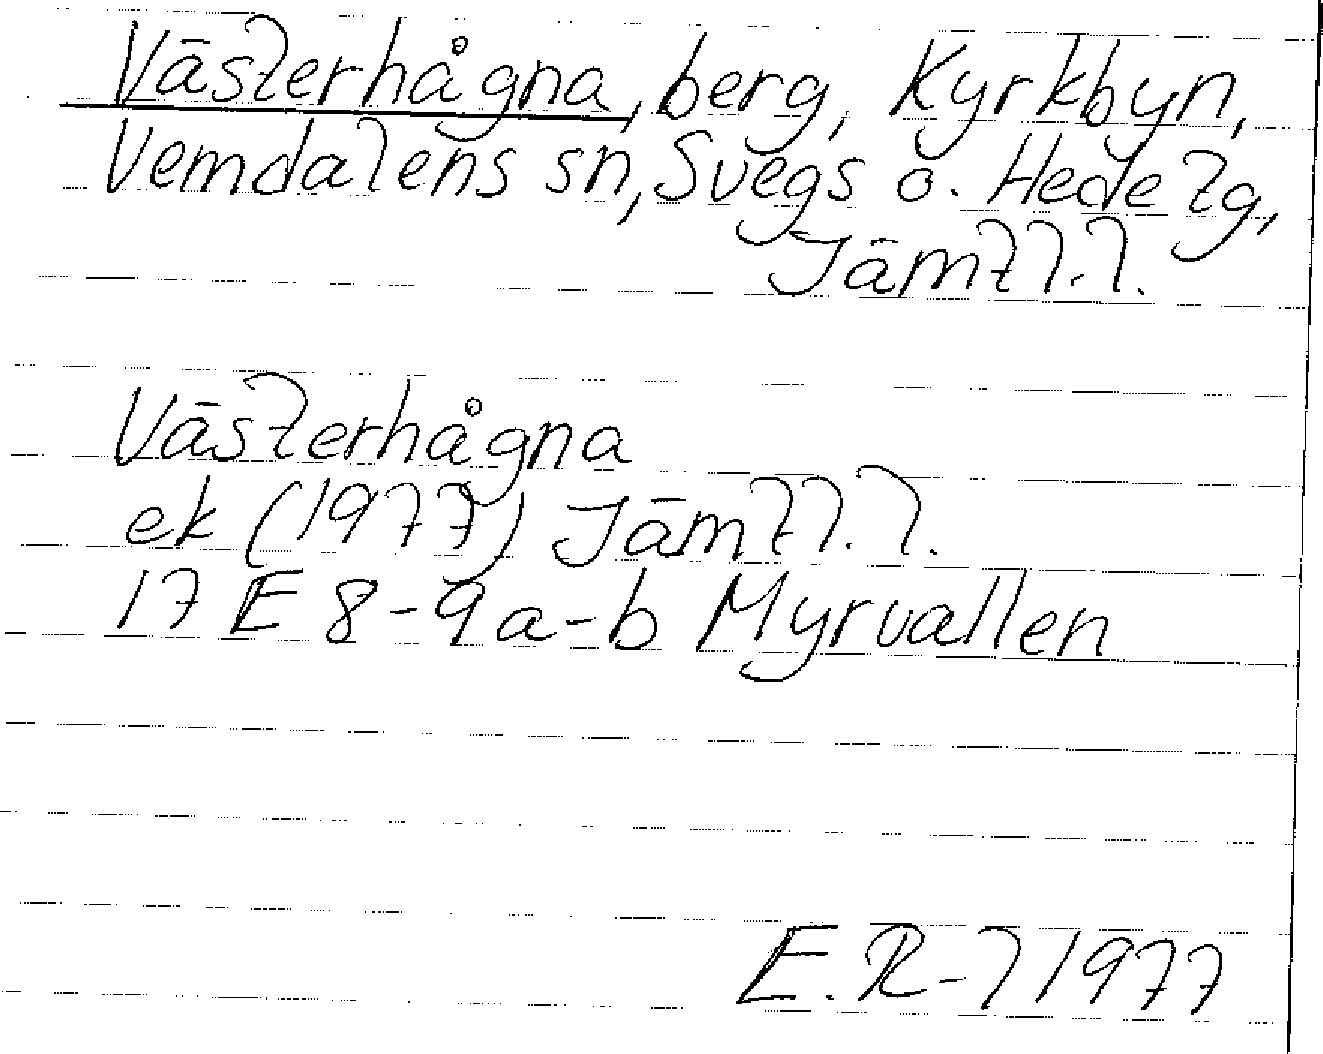 Västerhågna, berg, Kyrkbyn,
Vemdalens sn, Svegs o. Hede tg,
Jämtl.l.
Västerhågna
ek (1977) Jämtl.l.
17 E 8-9a-b Myrvallen
E.R-l 1977